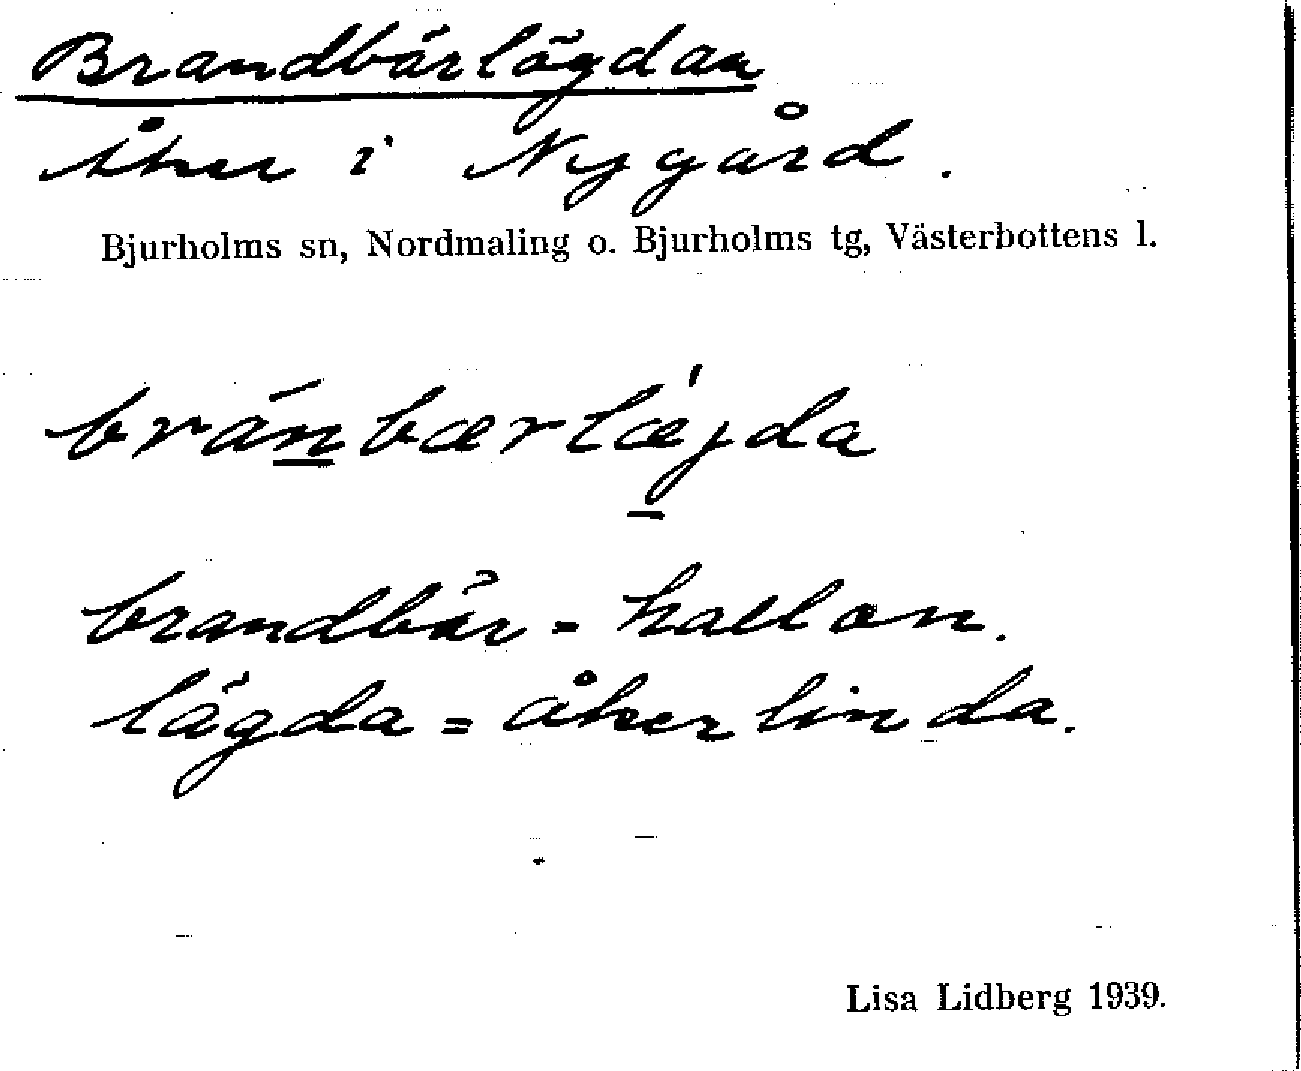 Brandbärlägdan
Åker i Nygård.
Bjurholms sn, Nordmaling o. Bjurholms tg, Västerbottens l.
bránbærlæ̀jda
brandbär = hallon.
lägda = åkerlinda.
Lisa Lidberg 1939.